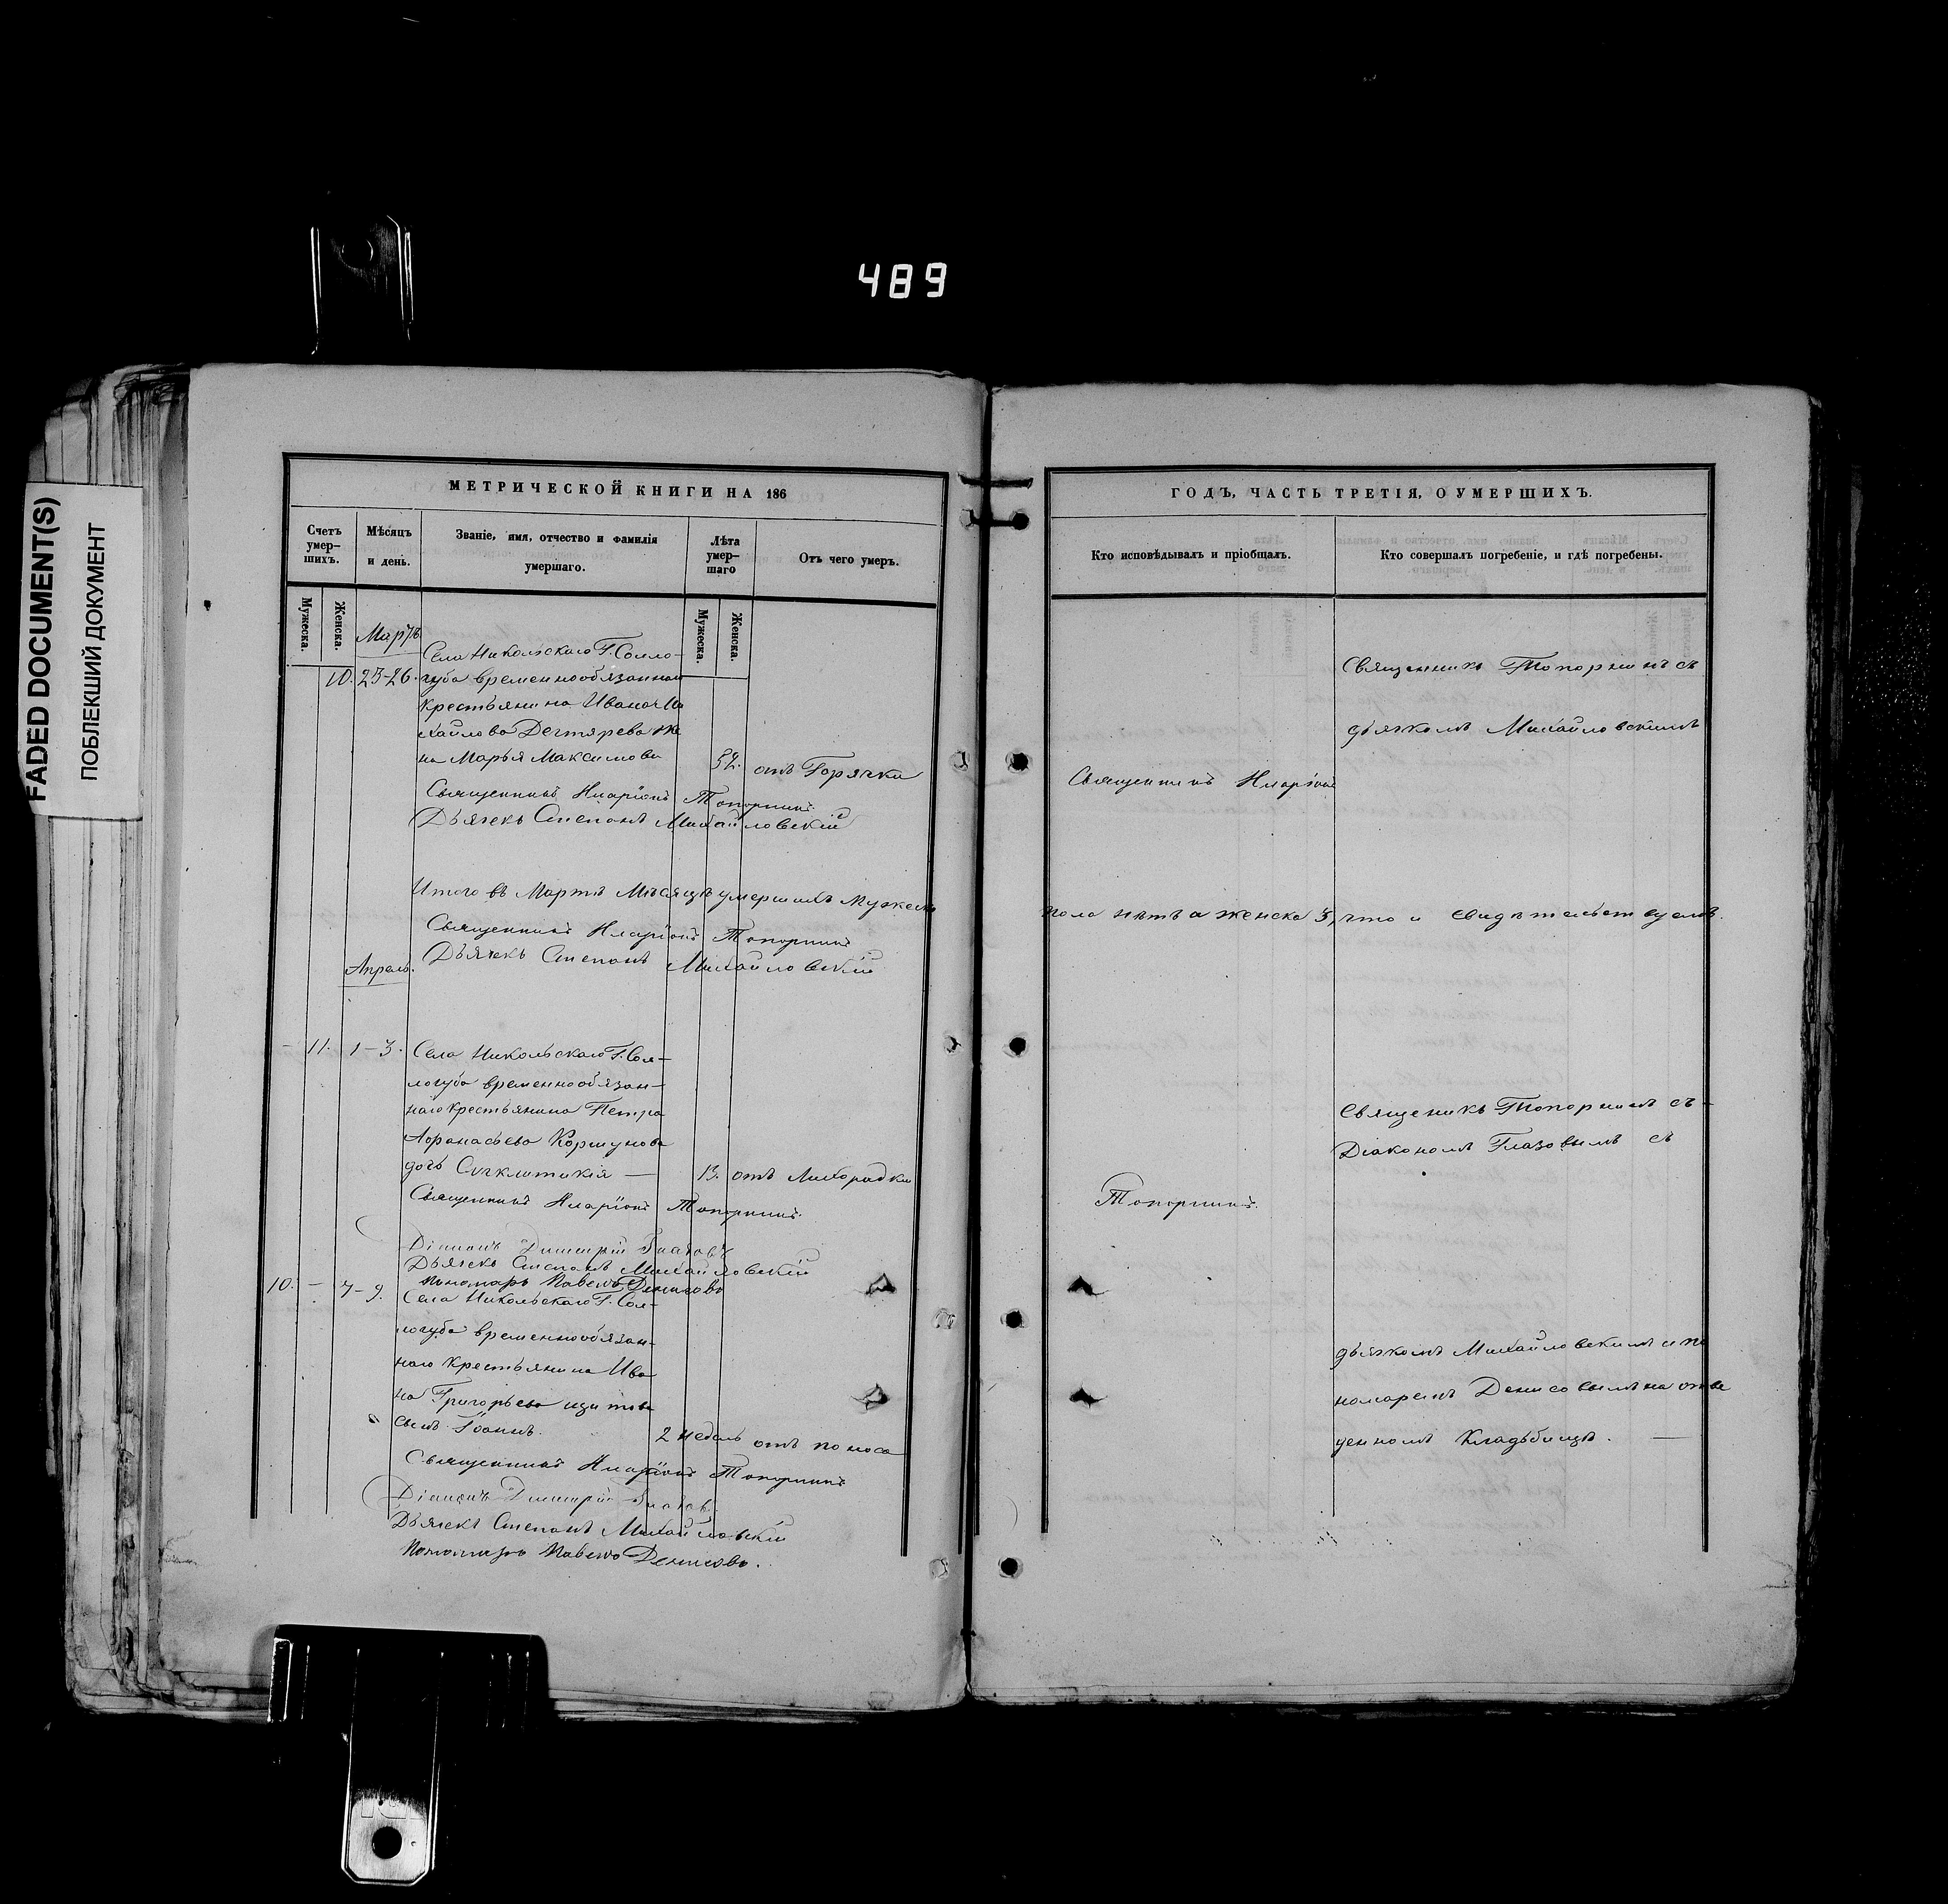 489
FADED DOCUMENT(S)
ПОБЛЕКШИЙ ДОКУМЕНТ
МЕТРИЧЕСКОЙ КНИГИ НА 186
Счетъ умер-шихъ.
Мѣсяцъ и день.
Званіе, имя, отчество и фамилія умершаго.
Лѣта умер-шаго
Отъ чего умеръ.
Мужеска.
Женска.
Мужеска.
Женска.
Мартъ
Села Никольскаго Г. Солло-
10. 25-26. губа временнообязаннаго
крестьянина Ивана Ми
хайлова Дегтярева же
на Марья Максимова 52. отъ Горячки
Священникъ Иларіонъ Топорнинъ
Дьячекъ Степанъ Михайловскій
Итого въ Мартѣ Мѣсяцѣ умершихъ Мужеска
Священникъ Иларіонъ Топорнинъ
Дьячекъ Степанъ Михайловскій
Апрель.
- 11. 1-3. Села Никольскаго Г. Сол-
логуба временнообязан-
наго крестьянина Петра
Афанасьева Коршунова
дочь Сугклитикія — 13. отъ Лихорадки
Священникъ Иларіонъ Топорнинъ.
Діаконъ Димитрій Глазовъ
Дьячекъ Степанъ Михайловскій
Пономарь Павелъ Денисовъ
10. - 7-9. Села Никольскаго Г. Сол-
логуба временнообязан-
наго крестьянина Ива
на Григорьева
сынъ Іоаннъ. 2 недѣль отъ поноса
Священникъ Иларіонъ Топорнинъ
Діаконъ Димитрій Глазовъ
Дьячекъ Степанъ Михайловскій
Пономарь Павелъ Денисовъ.
ГОДЪ, ЧАСТЬ ТРЕТІЯ, О УМЕРШИХЪ.
Кто исповѣдывалъ и пріобщалъ.
Кто совершалъ погребеніе, и гдѣ погребены.
Священникъ Топорнинъ съ
дьячкомъ Михайловскимъ
Священникъ Иларіонъ
пола нѣтъ а женска 3, что и свидѣтельствуемъ.
Священикъ Топорнинъ съ
Діакономъ Глазовымъ съ
Топорнинъ.
дьячкомъ Михайловскимъ и по
номаремъ Денисовымъ на отве
денномъ Кладьбищѣ. —